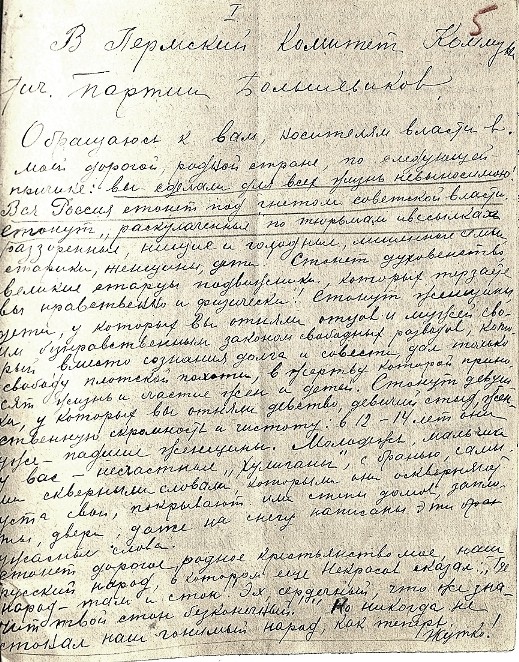 I
5
В Пермский Комитет Коммун
тич. Партии Большевиков
Обращаюсь к вам, носителям власти в
моей дорогой, родной стране, по следующей
причине: вы сделали для всех жизнь невыносимой
Вся Россия стонет под гнетом советской власти
Стонут „раскулаченные по тюрьмам и в ссылках
раззоренные, нищие и голодные, лишенные
старики, женщины, дети. Стонет духовенство
великие старцы подвижники, которых терзаете
вы нравственно и физически! Стонут женщины
дети, у которых вы отняли отцов и мужей сво-
им безнравственным законом свободных разводов, кото-
рый вместо сознания долга и совести, дал только
свободу плотской похоти, в жертву которой прино
сят жизнь и счастие жен и детей. Стонут девуш
ки, у которых вы отняли девство, девичий стыд, жен
ственную скромность и чистоту: в 12-14 лет они
уже - падшие женщины. Молодежь, мальчики
у вас - несчастные „хулиганы", с бранью, сами
ми скверными словами, которыми они оскверняют
уста свои, покрывают ими стены домов,
ты, двери, даже на снегу написаны эти
ужасные слова.
Стонет дорогое, родное крестьянство мое, наш
русский народ, о котором еще Некрасов сказал: „Где
народ - там и стон. Эх, сердечный, что же зна-
чит твой стон бесконечный." Но никогда не
стонал наш гонимый народ, как теперь.
Жутко!